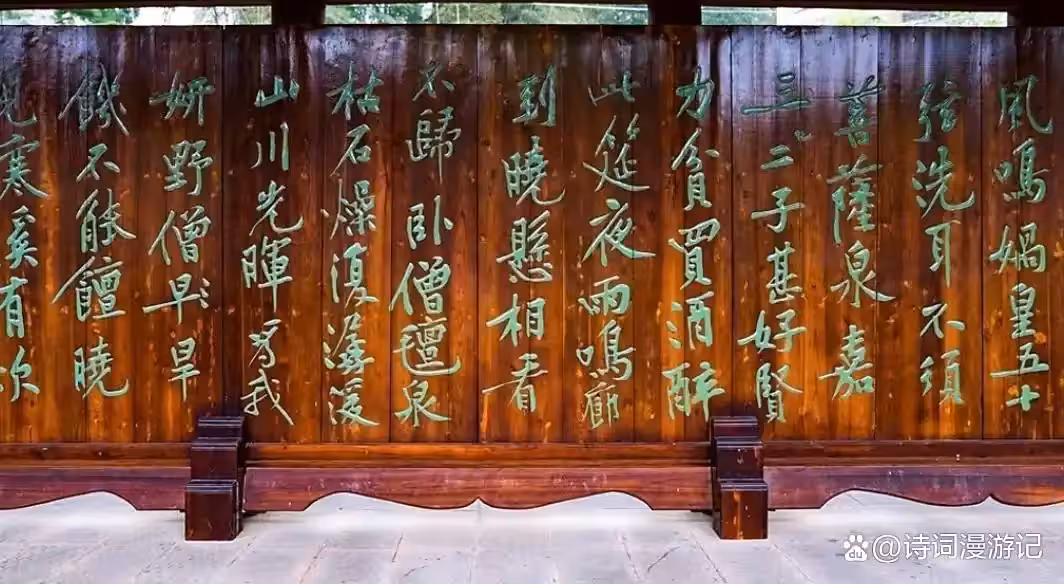 風鳴媧皇五十
弦洗耳不須
菩薩泉嘉
三二子甚好賢
力貧買酒醉
此筵夜雨鳴廊
到曉懸相看
不歸臥僧氊泉
枯石燥復潺湲
山川光暉為我
妍野僧早旱
饑不能饘曉
見寒溪有炊
@诗词漫游记